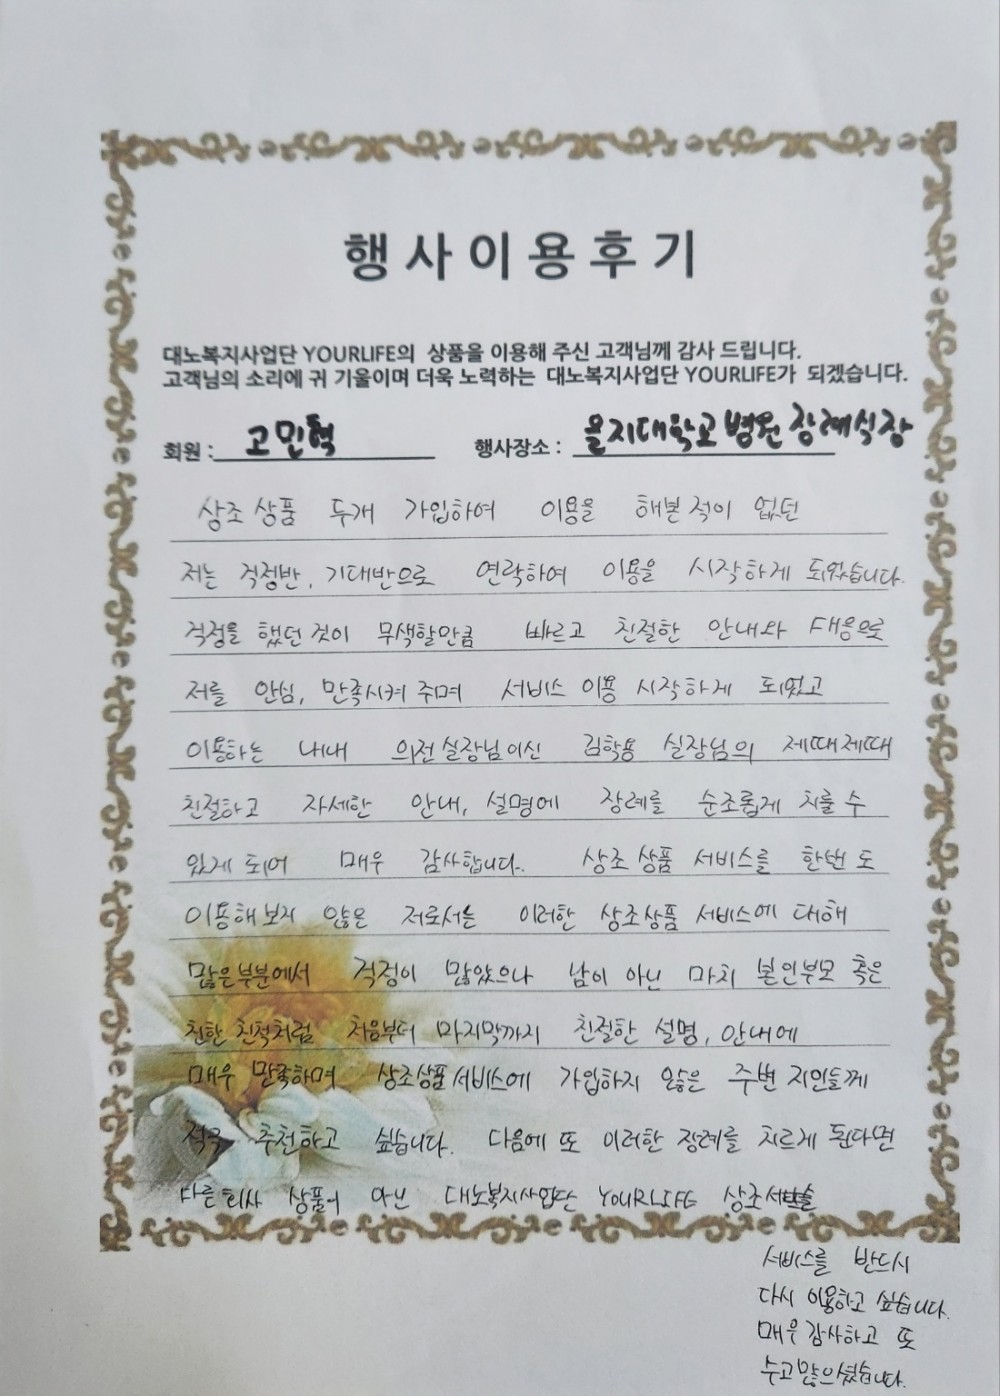 행사이용후기
대노복지사업단 YOURLIFE의 상품을 이용해 주신 고객님께 감사 드립니다.
고객님의 소리에 귀 기울이며 더욱 노력하는 대노복지사업단 YOURLIFE가 되겠습니다.
회원 : 고민혁 행사장소 : 을지대학교병원 장례식장
상조 상품 두개 가입하여 이용을 해본 적이 없던
저는 걱정반, 기대반으로 연락하여 이용을 시작하게 되었습니다.
걱정을 했던 것이 무색할만큼 빠르고 친절한 안내와 대응으로
저를 안심, 만족시켜 주며 서비스 이용 시작하게 되었고
이용하는 내내 의전실장님이신 김학용 실장님의 제때제때
친절하고 자세한 안내, 설명에 장례를 순조롭게 치룰 수
있게 되어 매우 감사합니다. 상조 상품 서비스를 한번도
이용해보지 않은 저로서는 이러한 상조상품 서비스에 대해
많은부분에서 걱정이 많았으나 남이 아닌 마치 본인부모 혹은
친한 친척처럼 처음부터 마지막까지 친절한 설명, 안내에
매우 만족하며 상조상품 서비스에 가입하지 않은 주변 지인들께
적극 추천하고 싶습니다. 다음에 또 이러한 장례를 치르게 된다면
다른회사 상품이 아닌 대노복지사업단 YOURLIFE 상조
서비스를 반드시
다시 이용하고 싶습니다.
매우 감사하고 또
수고많으셨습니다.